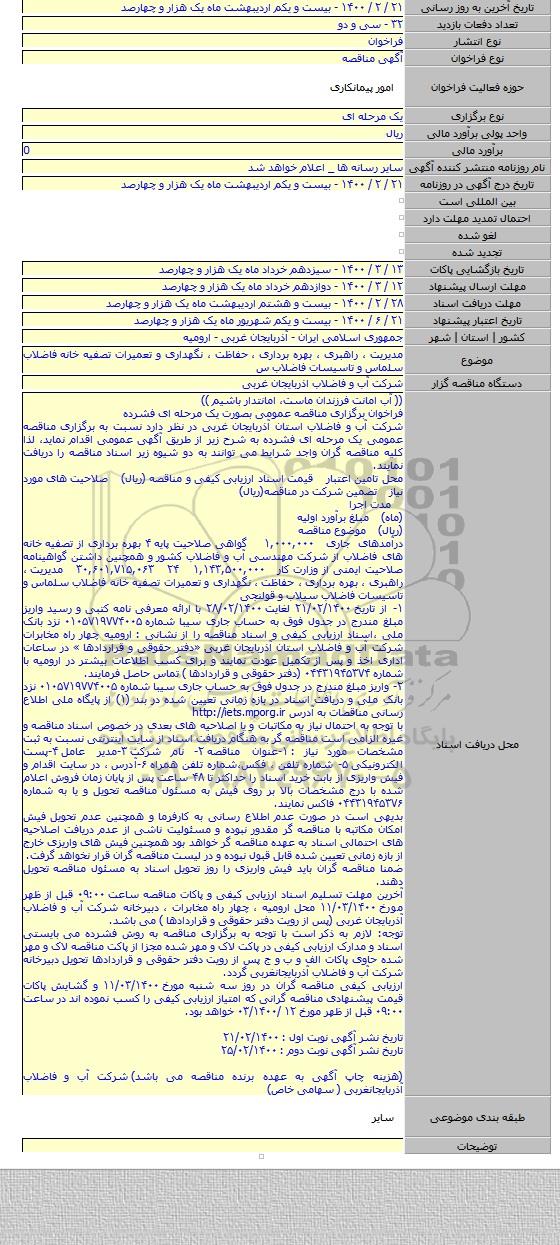 تاریخ آخرین به روز رسانی ۲۱ / ۲ / ۱۴۰۰ - بیست و یکم اردیبهشت ماه یک هزار و چهارصد
تعداد دفعات بازدید ۳۲ - سی و دو
نوع انتشار فراخوان
نوع فراخوان آگهی مناقصه
حوزه فعالیت فراخوان امور پیمانکاری
نوع برگزاری یک مرحله ای
واحد پولی برآورد مالی ریال
برآورد مالی 0
نام روزنامه منتشر کننده آگهی سایر رسانه ها _ اعلام خواهد شد
تاریخ درج آگهی در روزنامه ۲۱ / ۲ / ۱۴۰۰ - بیست و یکم اردیبهشت ماه یک هزار و چهارصد
بین المللی است
احتمال تمدید مهلت دارد
لغو شده
تجدید شده
تاریخ بازگشایی پاکات ۱۳ / ۳ / ۱۴۰۰ - سیزدهم خرداد ماه یک هزار و چهارصد
مهلت ارسال پیشنهاد ۱۲ / ۳ / ۱۴۰۰ - دوازدهم خرداد ماه یک هزار و چهارصد
مهلت دریافت اسناد ۲۸ / ۲ / ۱۴۰۰ - بیست و هشتم اردیبهشت ماه یک هزار و چهارصد
تاریخ اعتبار پیشنهاد ۲۱ / ۶ / ۱۴۰۰ - بیست و یکم شهریور ماه یک هزار و چهارصد
کشور | استان | شهر جمهوری اسلامی ایران - آذربایجان غربی - ارومیه
موضوع مدیریت ، راهبری ، بهره برداری ، حفاظت ، نگهداری و تعمیرات تصفیه خانه فاضلاب
سلماس و تاسیسات فاضلاب س
دستگاه مناقصه گزار شرکت آب و فاضلاب آذربایجان غربی
محل دریافت اسناد
(( آب امانت فرزندان ماست، امانتدار باشیم ))
فراخوان برگزاری مناقصه عمومی بصورت یک مرحله ای فشرده
شرکت آب و فاضلاب استان آذربایجان غربی در نظر دارد نسبت به برگزاری مناقصه
عمومی یک مرحله ای فشرده به شرح زیر از طریق آگهی عمومی اقدام نماید، لذا
کلیه مناقصه گران واجد شرایط می توانند به دو شیوه زیر اسناد مناقصه را دریافت
نمایند.
محل تامین اعتبار قیمت اسناد ارزیابی کیفی و مناقصه (ریال) صلاحیت های مورد
نیاز تضمین شرکت در مناقصه(ریال)
مدت اجرا
(ماه) مبلغ برآورد اولیه
(ریال) موضوع مناقصه
درآمدهای جاری ۱,۰۰۰,۰۰۰ گواهی صلاحیت پایه ۴ بهره برداری از تصفیه خانه
های فاضلاب از شرکت مهندسی آب و فاضلاب کشور و همچنین داشتن گواهینامه
صلاحیت ایمنی از وزارت کار ۱,۱۴۳,۵۰۰,۰۰۰ ۲۴ ۳۰,۶۰۱,۷۱۵,۰۶۳ مدیریت ،
راهبری ، بهره برداری ، حفاظت ، نگهداری و تعمیرات تصفیه خانه فاضلاب سلماس و
تاسیسات فاضلاب سیلاب و قولنجی
۱- از تاریخ ۲۱/۰۲/۱۴۰۰ لغایت ۲۸/۰۲/۱۴۰۰ با ارائه معرفی نامه کتبی و رسید واریز
مبلغ مندرج در جدول فوق به حساب جاری سیبا شماره ۰۱۰۵۷۱۹۷۷۴۰۰۵ نزد بانک
ملی ،اسناد ارزیابی کیفی و اسناد مناقصه را از نشانی : ارومیه چهار راه مخابرات
شرکت آب و فاضلاب استان آذربایجان غربی «دفتر حقوقی و قراردادها » در ساعات
اداری اخذ و پس از تکمیل عودت نمایند و برای کسب اطلاعات بیشتر در ارومیه با
شماره ۰۴۴۳۱۹۴۵۳۷۴ (دفتر حقوقی و قراردادها ) تماس حاصل فرمایند.
۲- واریز مبلغ مندرج در جدول فوق به حساب جاری سیبا شماره ۰۱۰۵۷۱۹۷۷۴۰۰۵ نزد
بانک ملی و دریافت اسناد در بازه زمانی تعیین شده در بند (۱) از پایگاه ملی اطلاع
رسانی مناقصات به آدرس http://iets.mporg.ir
با توجه به احتمال نیاز به مکاتبات و یا اصلاحیه های بعدی در خصوص اسناد مناقصه و
غیره الزامی است مناقصه گر به هنگام دریافت اسناد از سایت اینترنتی نسبت به ثبت
مشخصات مورد نیاز : ۱-عنوان مناقصه ۲- نام شرکت ۳-مدیر عامل ۴-پست
الکترونیکی ۵- شماره تلفن ، فکس،شماره تلفن همراه ۶-آدرس ، در سایت اقدام و
فیش واریزی از بابت خرید اسناد را حداکثر تا ۴۸ ساعت پس از پایان زمان فروش اعلام
شده با درج مشخصات بالا بر روی فیش به مسئول مناقصه تحویل و یا به شماره
۰۴۴۳۱۹۴۵۳۷۶ فاکس نمایند.
بدیهی است در صورت عدم اطلاع رسانی به کارفرما و همچنین عدم تحویل فیش
امکان مکاتبه با مناقصه گر مقدور نبوده و مسئولیت ناشی از عدم دریافت اصلاحیه
های احتمالی اسناد به عهده مناقصه گر خواهد بود همچنین فیش های واریزی خارج
از بازه زمانی تعیین شده قابل قبول نبوده و در لیست مناقصه گران قرار نخواهد گرفت.
ضمنا مناقصه گران باید فیش واریزی را روز تحویل اسناد به مسئول مناقصه تحویل
دهند.
آخرین مهلت تسلیم اسناد ارزیابی کیفی و پاکات مناقصه ساعت ۰۹:۰۰ قبل از ظهر
مورخ ۱۱/۰۳/۱۴۰۰ محل ارومیه ، چهار راه مخابرات ، دبیرخانه شرکت آب و فاضلاب
آذربایجان غربی (پس از رویت دفتر حقوقی و قراردادها ) می باشد.
توجه: لازم به ذکر است با توجه به برگزاری مناقصه به روش فشرده می بایستی
اسناد و مدارک ارزیابی کیفی در پاکت لاک و مهر شده مجزا از پاکت مناقصه لاک و مهر
شده حاوی پاکات الف و ب و ج پس از رویت دفتر حقوقی و قراردادها تحویل دبیرخانه
شرکت آب و فاضلاب آذربایجانغربی گردد.
ارزیابی کیفی مناقصه گران در روز سه شنبه مورخ ۱۱/۰۳/۱۴۰۰ و گشایش پاکات
قیمت پیشنهادی مناقصه گرانی که امتیاز ارزیابی کیفی را کسب نموده اند در ساعت
۰۹:۰۰ قبل از ظهر مورخ ۱۲ /۰۳/۱۴۰۰ خواهد بود.
تاریخ نشر آگهی نوبت اول : ۲۱/۰۲/۱۴۰۰
تاریخ نشر آگهی نوبت دوم : ۲۵/۰۲/۱۴۰۰
(هزینه چاپ آگهی به عهده برنده مناقصه می باشد) شرکت آب و فاضلاب
آذربایجانغربی ( سهامی خاص)
طبقه بندی موضوعی سایر
توضیحات